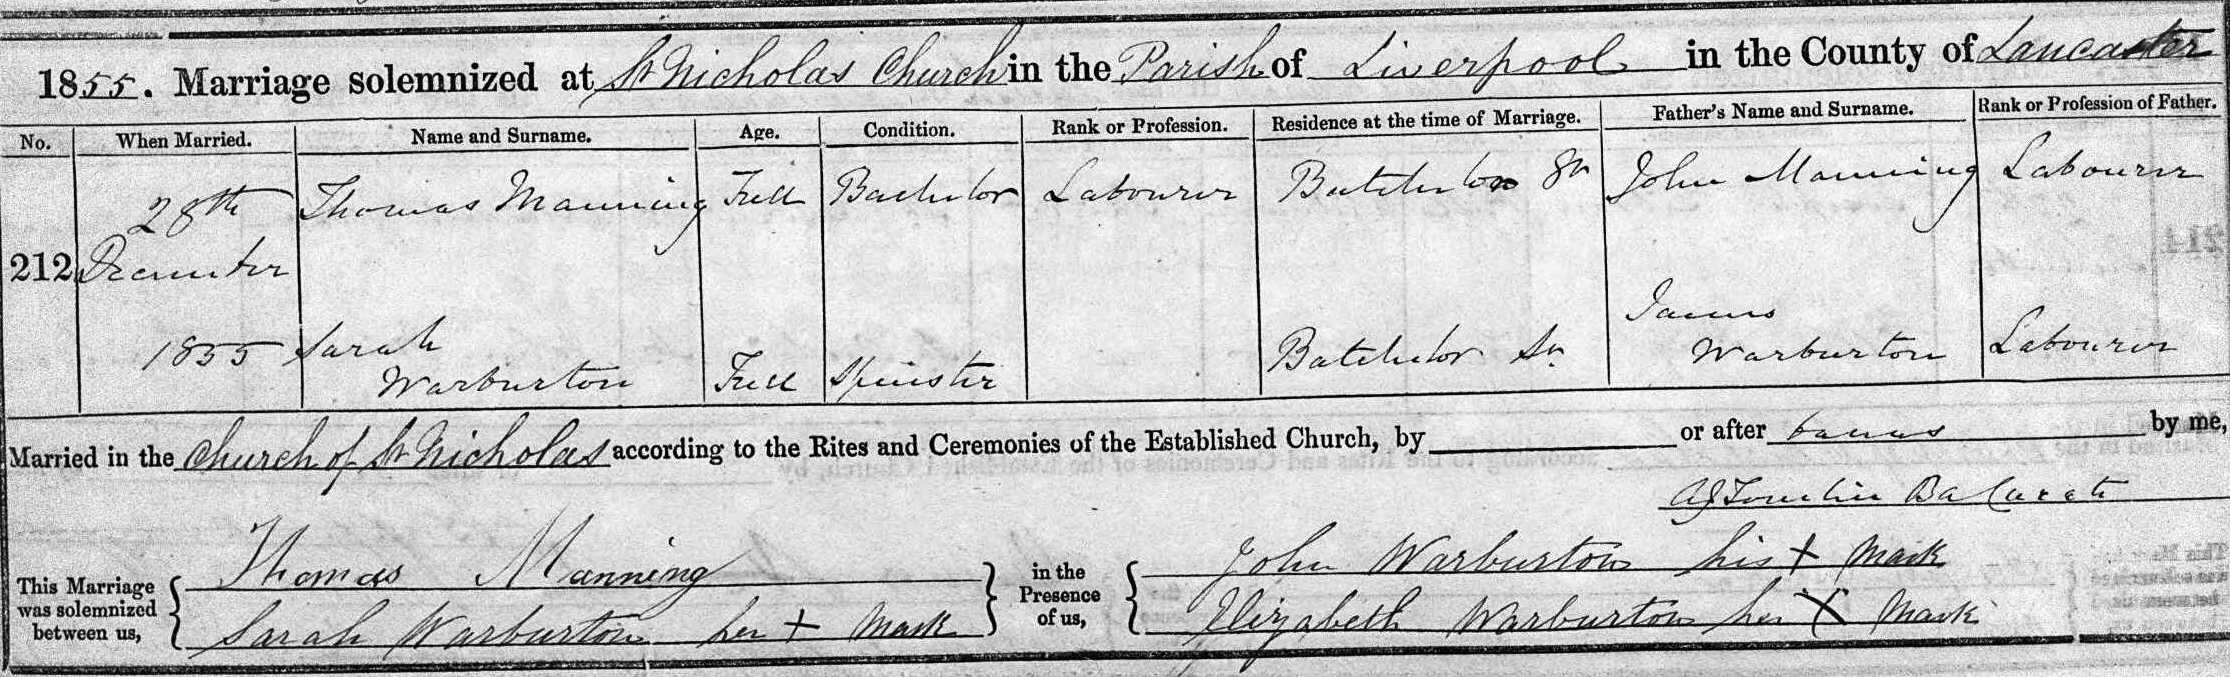 1855. Marriage solemnized at St Nicholas Church in the Parish of Liverpool in the County of Lancaster
No. When Married. Name and Surname. Age. Condition. Rank or Profession. Residence at the time of Marriage. Father's Name and Surname. Rank or Profession of Father.
28th Thomas Manning Full Bachelor Labourer Batchelor St John Manning Labourer
212 December
1855 Sarah Warburton Full Spinster Batchelor St James Warburton Labourer
Married in the Church of St Nicholas according to the Rites and Ceremonies of the Established Church, by or after banns by me,
Tomlin BA Curate
This Marriage was solemnized between us, Thomas Manning in the Presence of us, John Warburton his + Mark
Sarah Warburton her + Mark Elizabeth Warburton her X Mark